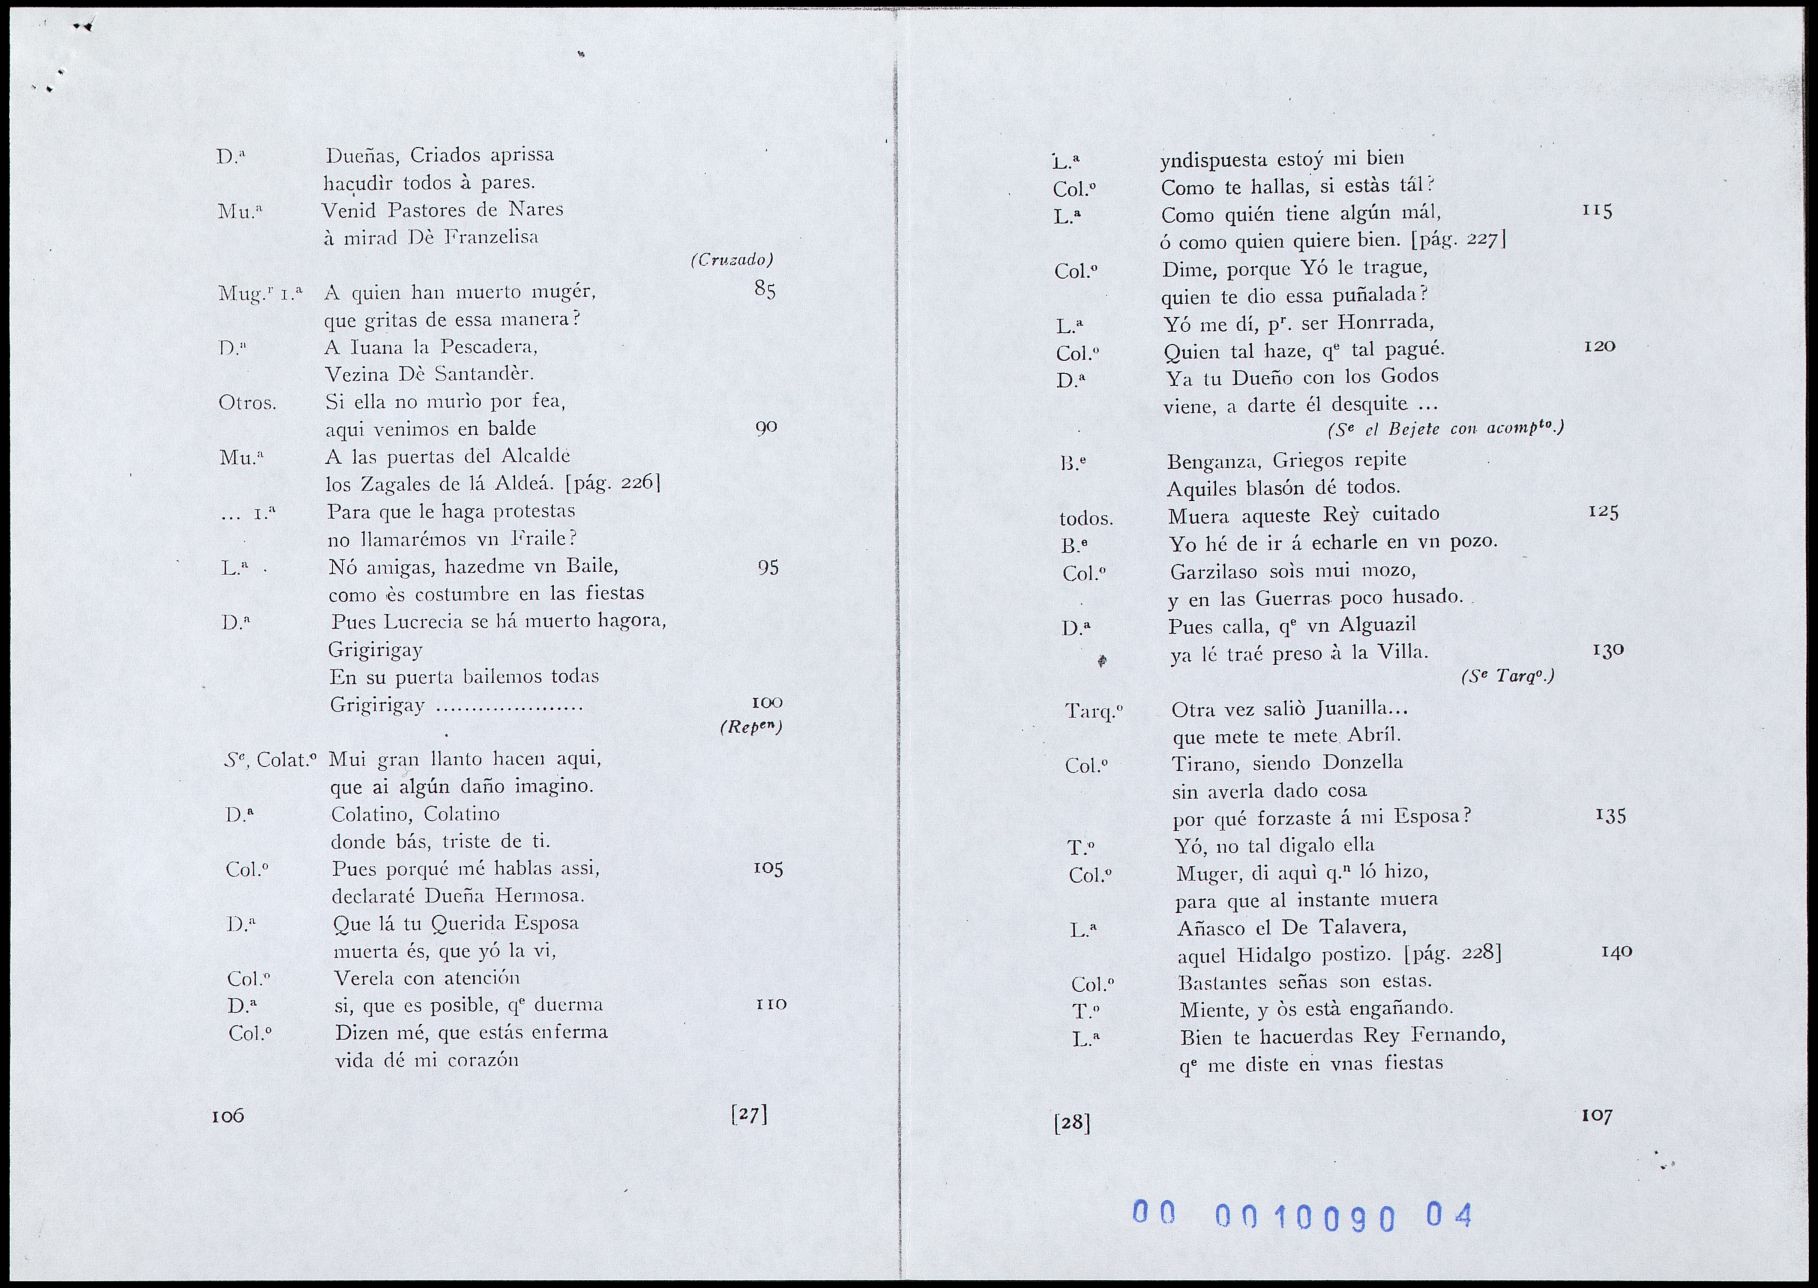 D.ª Dueñas, Criados aprissa
haçudìr todos à pares.
Mu.ª Venid Pastores de Nares
à mirad Dè Franzelisa
(Cruzado)
Mug.ʳ 1.ª A quien han muerto mugér, 85
que gritas de essa manera?
D.ª A Iuana la Pescadera,
Vezina Dè Santandèr.
Otros. Si ella no murìo por fea,
aqui venimos en balde 90
Mu.ª A las puertas del Alcalde
los Zagales de lá Aldeá. [pág. 226]
... 1.ª Para que le haga protestas
no llamarémos vn Fraile?
L.ª Nó amigas, hazedme vn Baile, 95
como ès costumbre en las fiestas
D.ª Pues Lucrecia se há muerto hagora,
Grigirigay
En su puerta bailemos todas
Grigirigay ..................... 100
(Repᵉⁿ)
Sᵉ, Colat.º Mui gran llanto hacen aqui,
que ai algún daño imagino.
D.ª Colatino, Colatino
donde bás, triste de ti.
Col.º Pues porqué mé hablas assi, 105
declaraté Dueña Hermosa.
D.ª Que lá tu Querida Esposa
muerta és, que yó la vi,
Col.º Verela con atención
D.ª si, que es posible, qᵉ duerma 110
Col.º Dizen mé, que estás enferma
vida dé mi corazón
106 [27]
L.ª yndispuesta estoý mi bien
Col.º Como te hallas, si estàs tál?
L.ª Como quién tiene algún mál, 115
ó como quien quiere bien. [pág. 227]
Col.º Dime, porque Yó le trague,
quien te dio essa puñalada?
L.ª Yó me dí, pʳ. ser Honrrada,
Col.º Quien tal haze, qᵉ tal pagué. 120
D.ª Ya tu Dueño con los Godos
viene, a darte él desquite ...
(Sᵉ el Bejete con acompᵗᵒ.)
B.ᵉ Benganza, Griegos repite
Aquiles blasón dé todos.
todos. Muera aqueste Reỳ cuitado 125
B.ᵉ Yo hé de ir á echarle en vn pozo.
Col.º Garzilaso soìs mui mozo,
y en las Guerras poco husado.
D.ª Pues calla, qᵉ vn Alguazil
ya lé traé preso à la Villa. 130
(Sᵉ Tarqº.)
Tarq.º Otra vez saliò Juanilla...
que mete te mete Abríl.
Col.º Tirano, siendo Donzella
sin averla dado cosa
por qué forzaste á mi Esposa? 135
T.º Yó, no tal digalo ella
Col.º Muger, di aquì q.ⁿ ló hizo,
para que al instante muera
L.ª Añasco el De Talavera,
aquel Hidalgo postizo. [pág. 228] 140
Col.º Bastantes señas son estas.
T.º Miente, y òs està engañando.
L.ª Bien te hacuerdas Rey Fernando,
qᵉ me diste en vnas fiestas
[28] 107
00 0010090 04